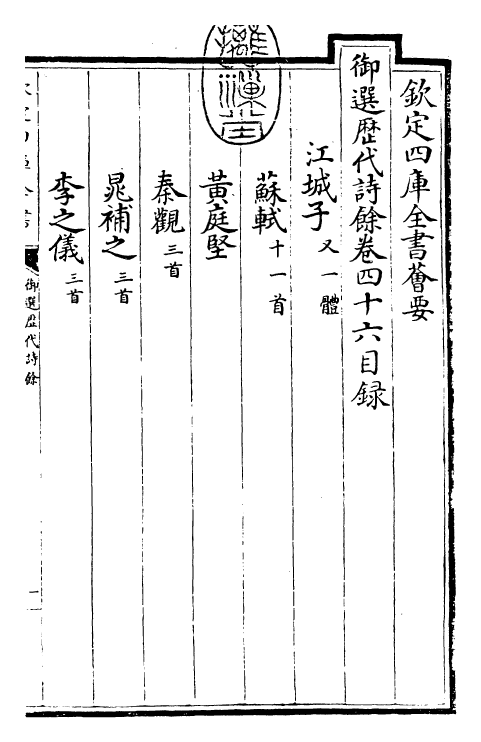 欽定四庫全書薈要
御選歴代詩餘卷四十六目録
江城子又一體
蘇軾十一首
黃庭堅
秦觀三首
晁補之三首
李之儀三首
御選歴代詩餘
一